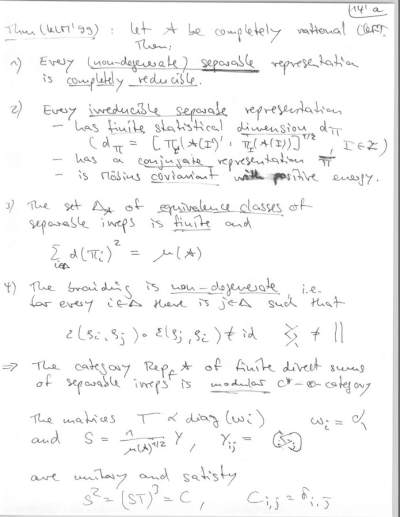 14' a
Thm (KLM '99): Let A be completely rational CQFT.
Then:
1) Every (non-degenerate) separable representation
is completely reducible.
2) Every irreducible separable representation
- has finite statistical dimension dπ
(dπ = [π(A(I'))' : π(A(I))]^1/2, I ∈ I)
- has a conjugate representation π̄
- is Möbius covariant with positive energy.
3) The set Δ_A of equivalence classes of
separable irreps is finite and
∑_{i∈Δ} d(πi)² = μ(A)
4) The braiding is non-degenerate, i.e.
for every i∈Δ there is j∈Δ such that
ε(ρi, ρj) ∘ ε(ρj, ρi) ≠ id ≠ ||
⇒ The category Rep_f A of finite direct sums
of separable irreps is modular C*-⊗-category
The matrices T ∝ diag(ωi) ωi =
and S = 1/μ(A)^1/2 Y, Yij =
are unitary and satisfy
S² = (ST)³ = C, C_{i,j} = δ_{i,j̄}